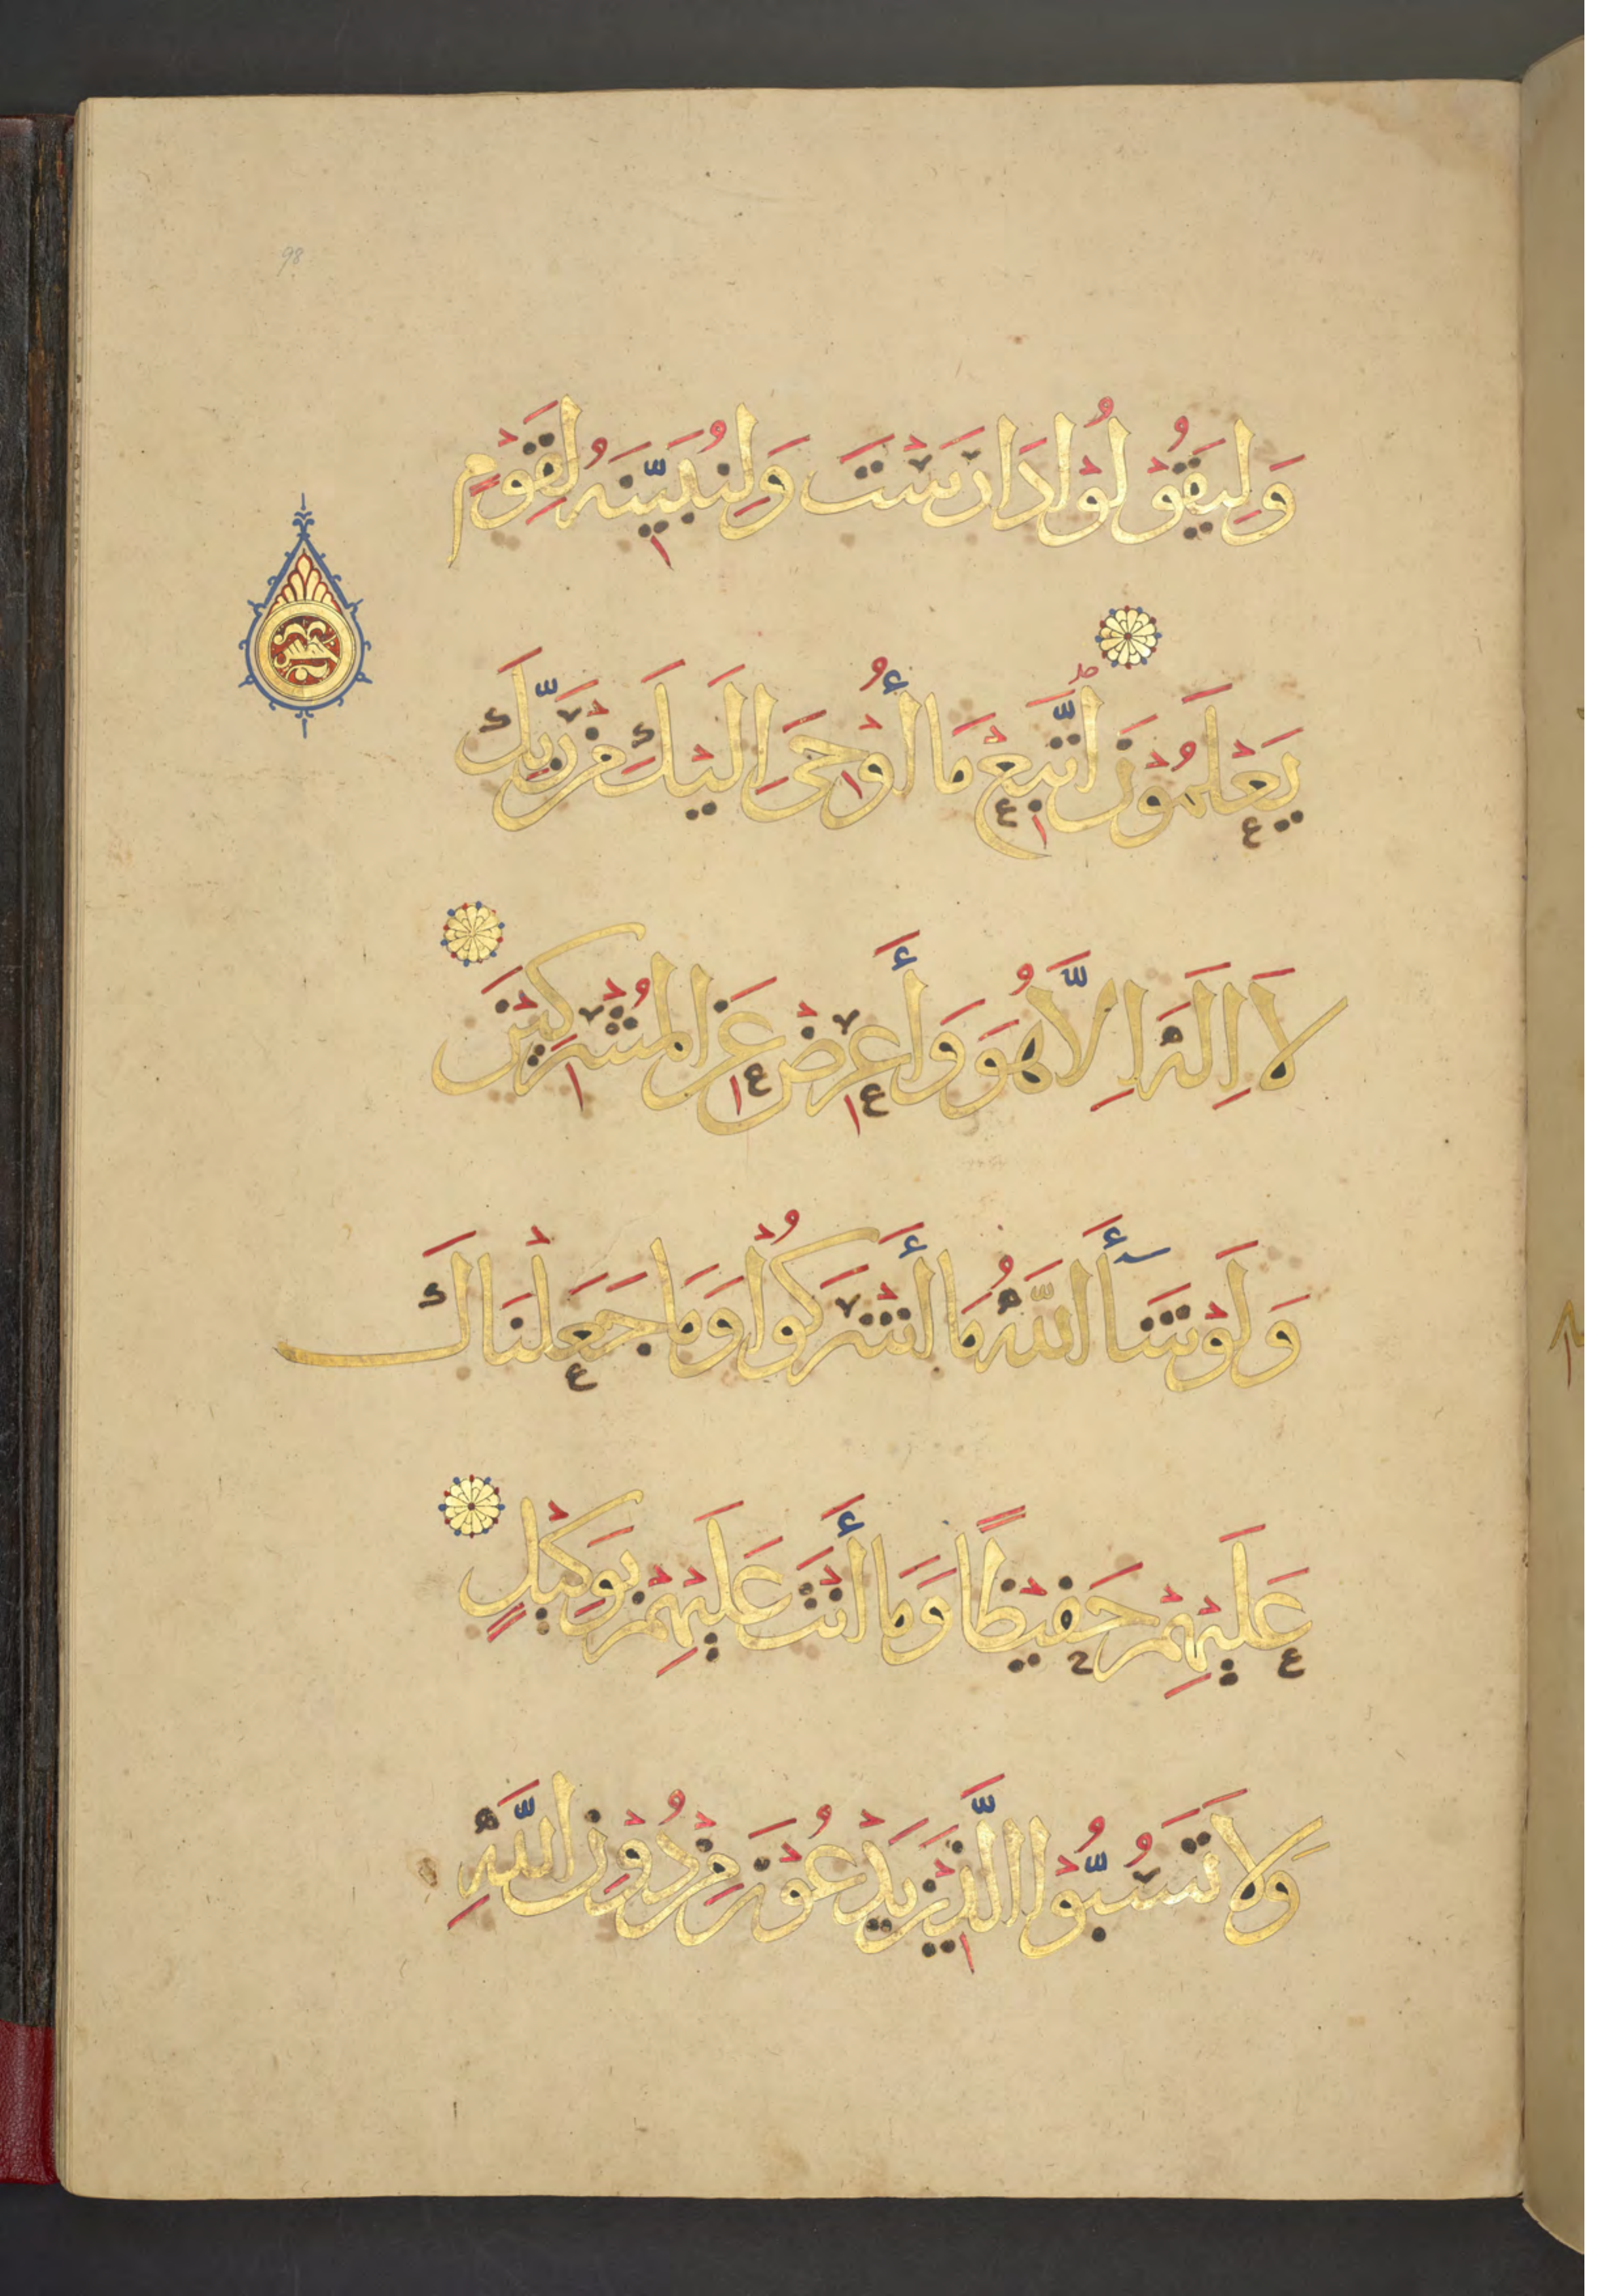 98
وَلِيَقُوْلُوْا دَارَسْتَ وَلِنُبَيِّنَهُ لِقَوْمٍ
يَعْلَمُوْنَ اتَّبِعْ مَا أُوْحِيَ اِلَيْكَ مِنْ رَبِّكَ
لَا اِلَهَ اِلَّا هُوَ وَأَعْرِضْ عَنِ الْمُشْرِكِيْنَ
وَلَوْ شَأَ اللَّهُ مَا أَشْرَكُوْا وَمَا جَعَلْنَاكَ
عَلَيْهِمْ حَفِيْظًا وَمَا أَنْتَ عَلَيْهِمْ بِوَكِيْلٍ
وَلَا تَسُبُّوْا الَّذِيْنَ يَدْعُوْنَ مِنْ دُوْنِ اللَّهِ